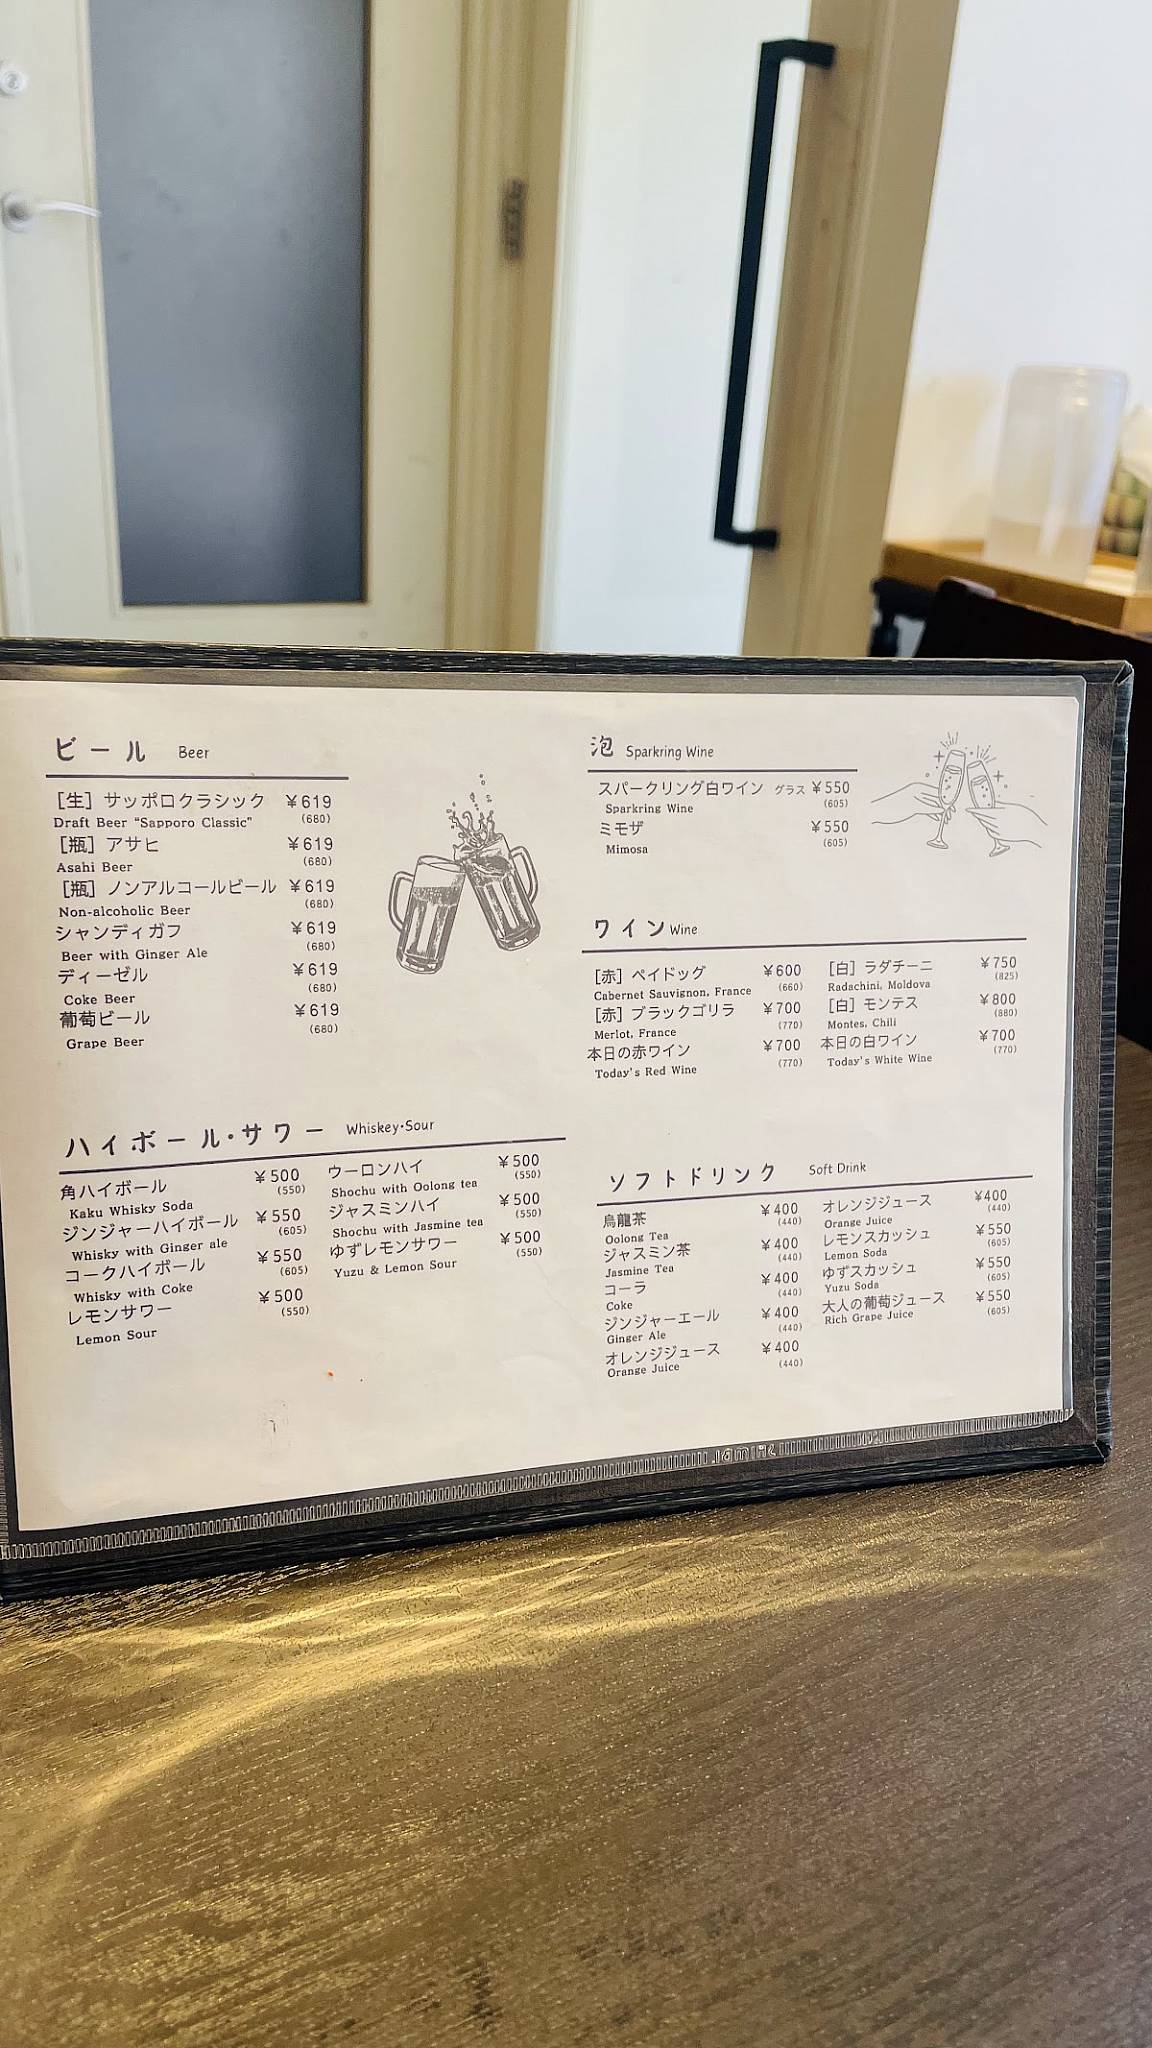 ビール Beer
[生] サッポロクラシック ¥619
Draft Beer “Sapporo Classic” (680)
[瓶] アサヒ ¥619
Asahi Beer (680)
[瓶] ノンアルコールビール ¥619
Non-alcoholic Beer (680)
シャンディガフ ¥619
Beer with Ginger Ale (680)
ディーゼル ¥619
Coke Beer (680)
葡萄ビール ¥619
Grape Beer (680)
ハイボール・サワー Whiskey・Sour
角ハイボール ¥500
Kaku Whisky Soda (550)
ジンジャーハイボール ¥550
Whisky with Ginger ale (605)
コークハイボール ¥550
Whisky with Coke (605)
レモンサワー ¥500
Lemon Sour (550)
ウーロンハイ ¥500
Shochu with Oolong tea (550)
ジャスミンハイ ¥500
Shochu with Jasmine tea (550)
ゆずレモンサワー ¥500
Yuzu & Lemon Sour (550)
泡 Sparkring Wine
スパークリング白ワイン グラス ¥550
Sparkring Wine (605)
ミモザ ¥550
Mimosa (605)
ワイン Wine
[赤] ペイドッグ ¥600
Cabernet Sauvignon, France (660)
[赤] ブラックゴリラ ¥700
Merlot, France (770)
本日の赤ワイン ¥700
Today's Red Wine (770)
[白] ラダチーニ ¥750
Radachini, Moldova (825)
[白] モンテス ¥800
Montes, Chili (880)
本日の白ワイン ¥700
Today's White Wine (770)
ソフトドリンク Soft Drink
烏龍茶 ¥400
Oolong Tea (440)
ジャスミン茶 ¥400
Jasmine Tea (440)
コーラ ¥400
Coke (440)
ジンジャーエール ¥400
Ginger Ale (440)
オレンジジュース ¥400
Orange Juice (440)
オレンジジュース ¥400
Orange Juice (440)
レモンスカッシュ ¥550
Lemon Soda (605)
ゆずスカッシュ ¥550
Yuzu Soda (605)
大人の葡萄ジュース ¥550
Rich Grape Juice (605)